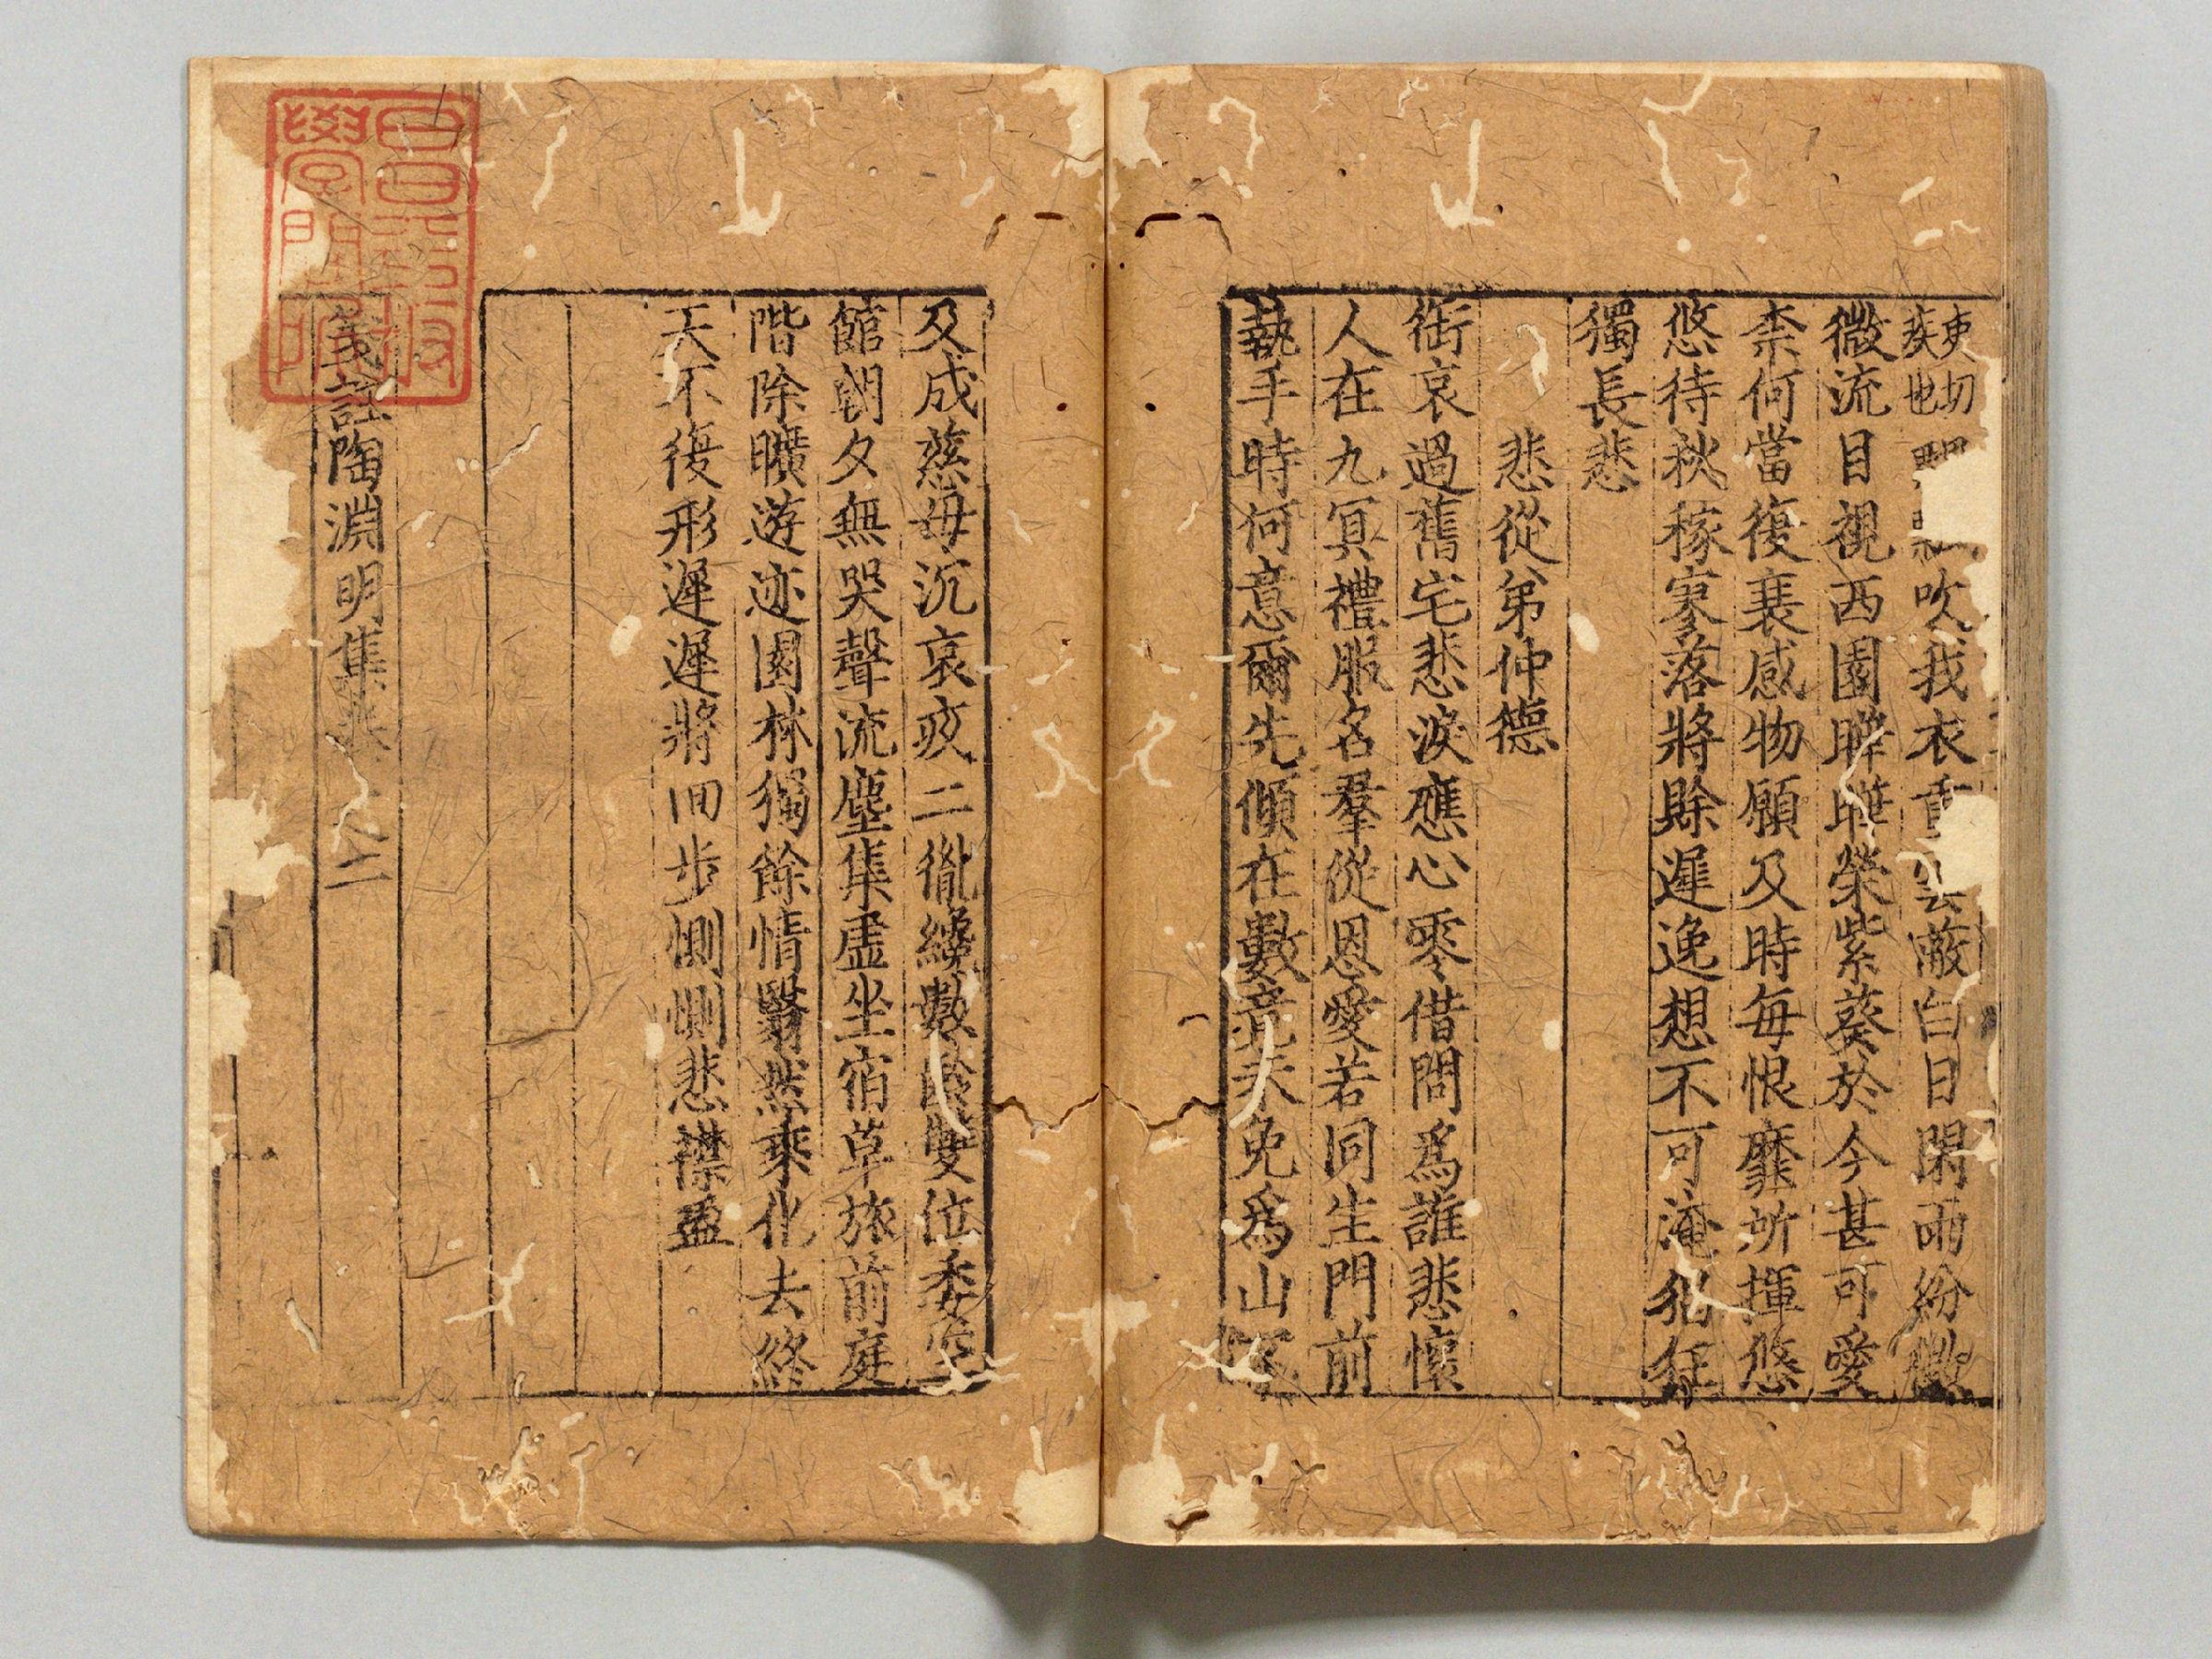 吏切
疾也
吹我衣重雲蔽白日閑雨紛微
微流目視西園曄曄榮紫葵於今甚可愛
柰何當復衰感物願及時每恨靡所揮悠
悠待秋稼寥落將賖遲逸想不可淹猖狂
獨長悲
悲從弟仲德
銜哀過舊宅悲淚應心零借問爲誰悲懷
人在九冥禮服名羣從恩愛若同生門前
執手時何意爾先傾在數竟未免爲山
及成慈母沉哀疚二胤纔數齡雙位委空
館朝夕無哭聲流塵集虛坐宿草旅前庭
階除曠遊迹園林獨餘情翳然乘化去終
天不復形遲遲將回步惻惻悲襟盈
箋註陶淵明集卷之二